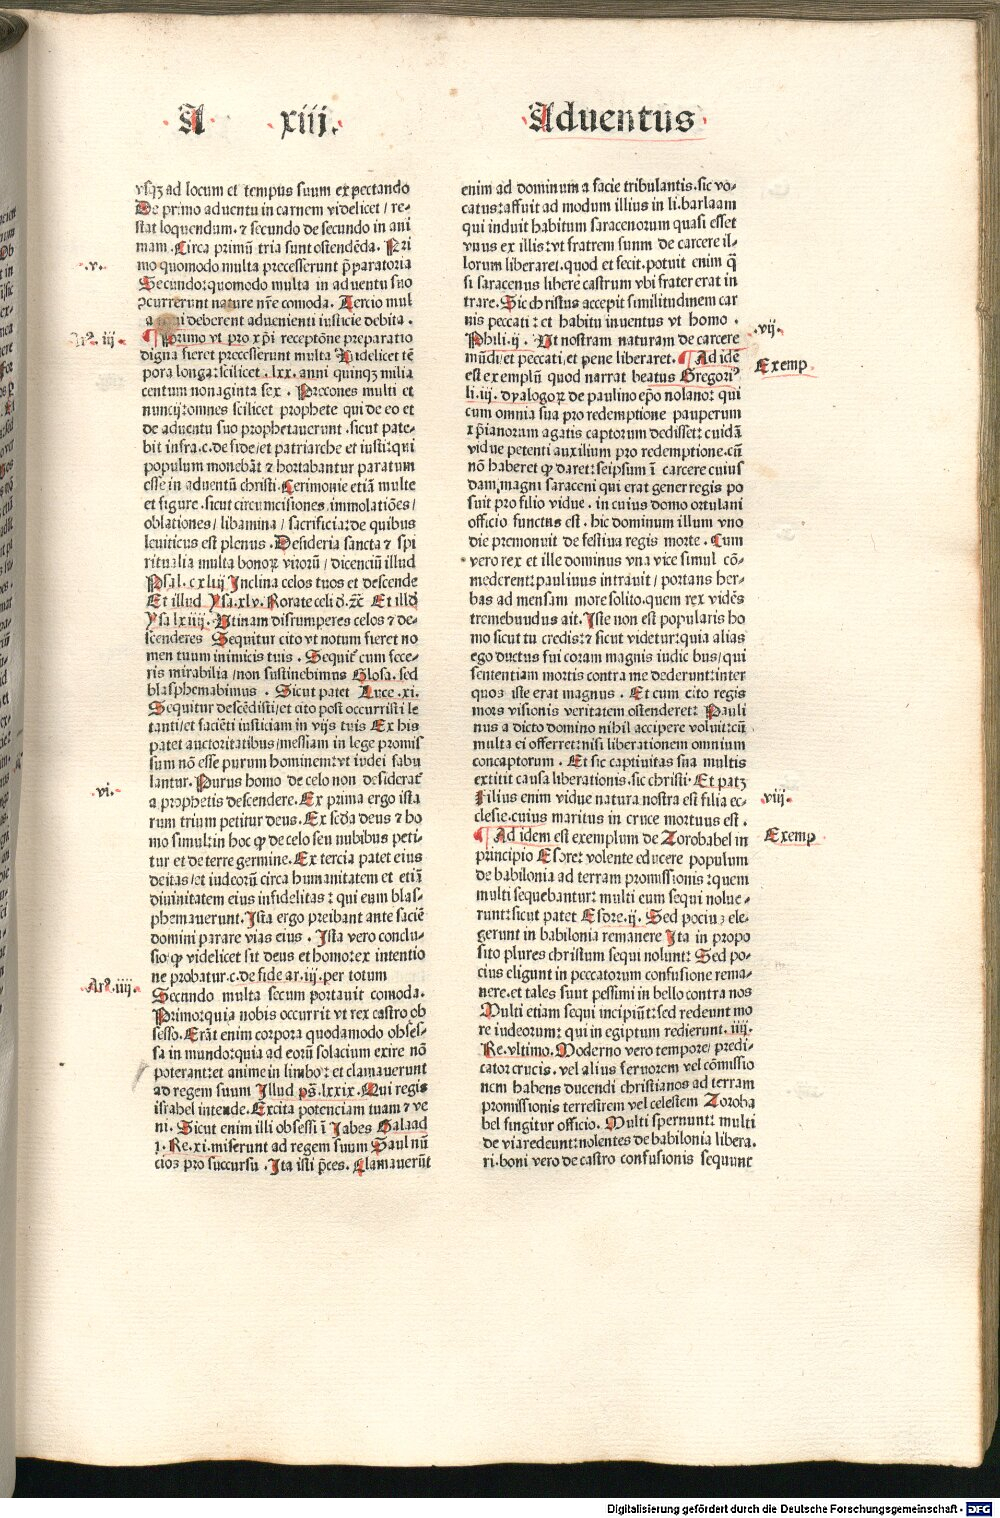 A xiij. Aduentus
vsqꝫ ad locum et tempus suum expectando
De primo aduentu in carnem videlicet / re-
stat loquendum. ⁊ secundo de secundo in ani
mam. Circa primū tria sunt ostendēda. Pri
.v.
mo quomodo multa precesserunt p̄paratoria
Secundo:quomodo multa in aduentu suo
ↄcurrerunt nature nr̄e comoda. Tercio mul
a deberent aduenienti iusticie debita.
Ar. iij
¶ Primo vt pro xp̄i receptōne preparatio
digna fieret precesserunt multa Videlicet tē
pora longa:scilicet .lxx. anni quinqꝫ milia
centum nonaginta sex . Precones multi et
nuncij:omnes scilicet prophete qui de eo et
de aduentu suo prophetauerunt .sicut pate-
bit infra.c.de fide/et patriarche et iusti:qui
populum monebāt ⁊ hortabantur paratum
esse in aduentū christi.Cerimonie etiā multe
et figure .sicut circumcisiones immolatiōes /
oblationes / libamina / sacrificia:de quibus
leuiticus est plenus .Desideria sancta ⁊ spi
ritualia multa bonoꝝ virorū / dicenciū illud
Psal.cxliij Inclina celos tuos et descende
Et illud Ysa.xlv. Rorate celi d. ⁊c̄ Et illd̄
Ysa lxiiij. Vtinam disrumperes celos ⁊ de-
scenderes Sequitur cito vt notum fieret no
men tuum inimicis tuis . Sequit̄ cum fece-
ris mirabilia /non sustinebimus Glosa. sed
blasphemabimus . Sicut patet Luce .xi.
Sequitur descēdisti/et cito post occurristi le
tanti/et faciēti iusticiam in vijs tuis Ex his
patet auctoritatibus/messiam in lege promis
sum nō esse purum hominem:vt iudei fabu
.vi.
lantur. Purus homo de celo non desiderat̄
a prophetis descendere. Ex prima ergo ista
rum trium petitur deus. Ex scd̄a deus ⁊ ho
mo simul:in hoc ꝙ de celo seu nubibus peti-
tur et de terre germine. Ex tercia patet eius
deitas/et iudeorū circa humanitatem et etiā
diuinitatem eius infidelitas: qui eum blas-
phemauerunt. Ista ergo preibant ante faciē
domini parare vias eius . Ista vero conclu-
sio: ꝙ videlicet sit deus et homo:ex intentio
ne probatur.c.de fide ar.iij.per totum
Ar.iiij.
Secundo multa secum portauit comoda.
Primo:quia nobis occurrit vt rex castro ob
sesso. Erāt enim corpora quodamodo obses-
sa in mundo:quia ad eorū solacium exire nō
poterant:et anime in limbo: et clamauerunt
ad regem suum Illud ps̄.lxxix.Qui regis
israhel intende.Excita potenciam tuam ⁊ ve
ni. Sicut enim illi obsessi ī Jabes Galaad
1. Re.xi.miserunt ad regem suum Saul nū
cios pro succursu .Ita isti p̄ces. Clamauerūt
enim ad dominum a facie tribulantis.sic vo-
catus:affuit ad modum illius in li.barlaam
qui induit habitum saracenorum quasi esset
vnus ex illis:vt fratrem suum de carcere il-
lorum liberaret.quod et fecit.potuit enim q̄
si saracenus libere castrum vbi frater erat in
trare. Sic christus accepit similitudinem car
nis peccati: et habitu inuentus vt homo .
.vij.
Phili.ij . Vt nostram naturam de carcere
mūdi/et peccati/et pene liberaret. ¶ Ad idē
Exemp.
est exemplū quod narrat beatus Gregoriꝰ
li.iij. dyalogoꝝ de paulino ep̄o nolano: qui
cum omnia sua pro redemptione pauperum
xp̄ianorum agatis captorum dedisset: cuidā
vidue petenti auxilium pro redemptione.cū
nō haberet ꝙ daret:seipsum ī carcere cuius
dam magni saraceni qui erat gener regis po
suit pro filio vidue . in cuius domo ortulani
officio functus est . hic dominum illum vno
die premonuit de festiua regis morte . Cum
vero rex et ille dominus vna vice simul cō-
mederent:paulinus intrauit / portans her-
bas ad mensam more solito.quem rex vidēs
tremebundus ait. Iste non est popularis ho
mo sicut tu credis: ⁊ sicut videtur:quia alias
ego ductus fui coram magnis iudicibus/qui
sententiam mortis contra me dederunt:inter
quos iste erat magnus . Et cum cito regis
mors visionis veritatem ostenderet: Pauli
nus a dicto domino nihil accipere voluit:cū
multa ei offerret:nisi liberationem omnium
concaptorum . Et sic captiuitas sua multis
extitit causa liberationis.sic christi. Et patꝫ
.viij.
Filius enim vidue natura nostra est filia ec-
clesie.cuius maritus in cruce mortuus est .
Exemp.
¶ Ad idem est exemplum de Zorobabel in
principio Esore: volente educere populum
de babilonia ad terram promissionis:quem
multi sequebantur: multi eum sequi nolue-
runt:sicut patet Esore.ij. Sed pocius ele-
gerunt in babilonia remanere Ita in propo
sito plures christum sequi nolunt: Sed po-
cius eligunt in peccatorum confusione rema-
nere.et tales sunt pessimi in bello contra nos
Multi etiam sequi incipiūt:sed redeunt mo
re iudeorum: qui in egiptum redierunt. iiij.
Re.vltimo. Moderno vero tempore/ predi-
cator crucis. vel alius feruorem vel cōmissio
nem habens ducendi christianos ad terram
promissionis terrestrem vel celestem Zoroba
bel fingitur officio. Multi spernunt: multi
de via redeunt:nolentes de babilonia libera.
ri.boni vero de castro confusionis sequunt
Digitalisierung gefördert durch die Deutsche Forschungsgemeinschaft - DFG